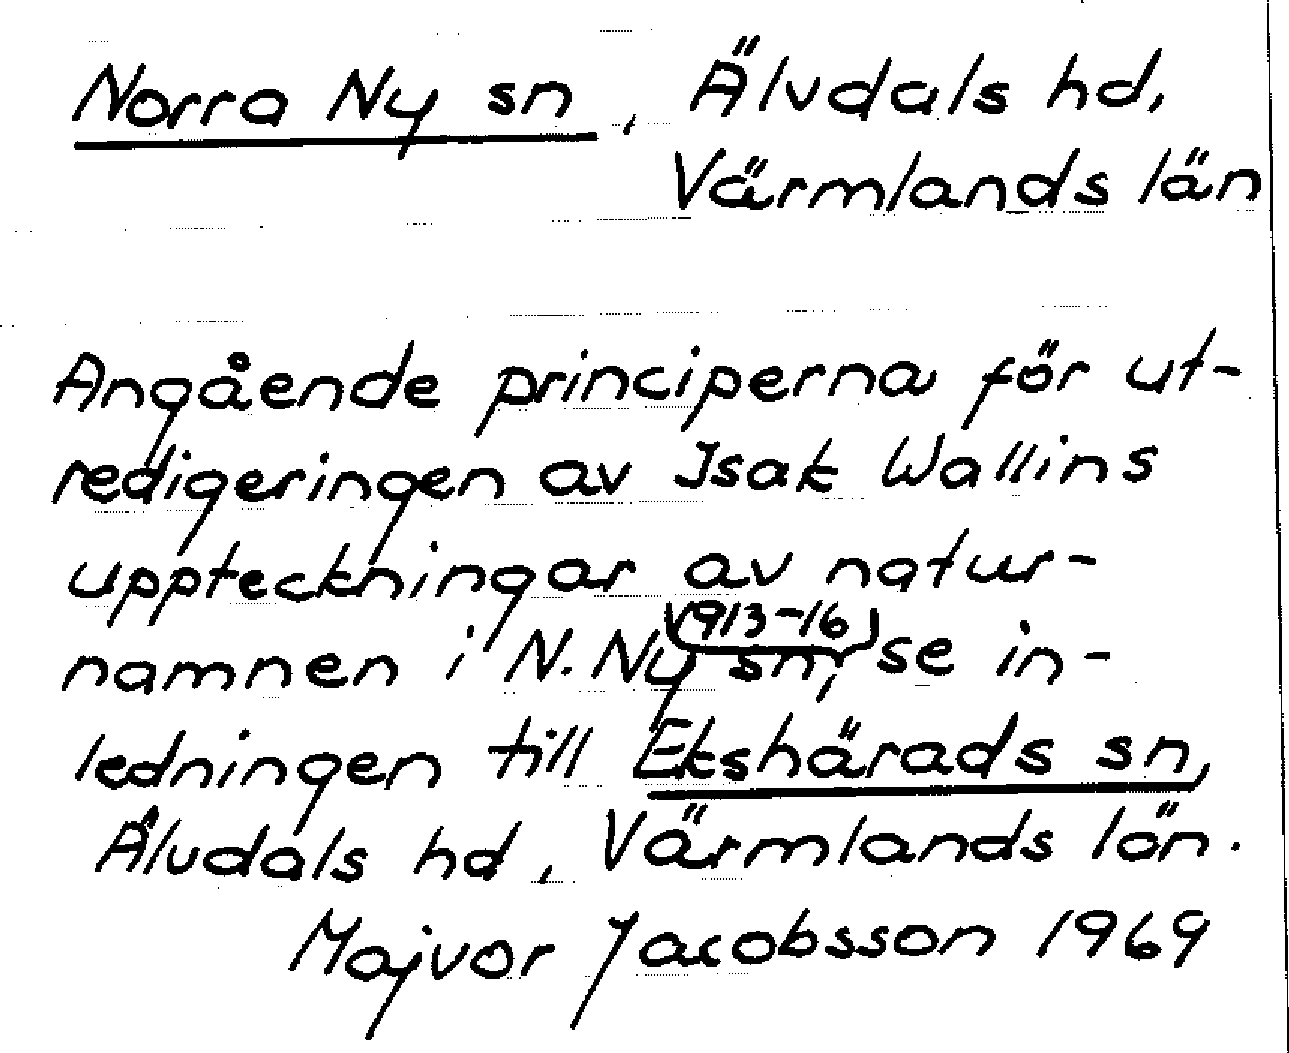 Norra Ny sn, Älvdals hd,
Värmlands län
Angående principerna för ut-
redigeringen av Isak Wallins
uppteckningar av natur-
(1913-16)
namnen i N. Ny sn, se in-
ledningen till Ekshärads sn,
Älvdals hd, Värmlands län.
Majvor Jacobsson 1969